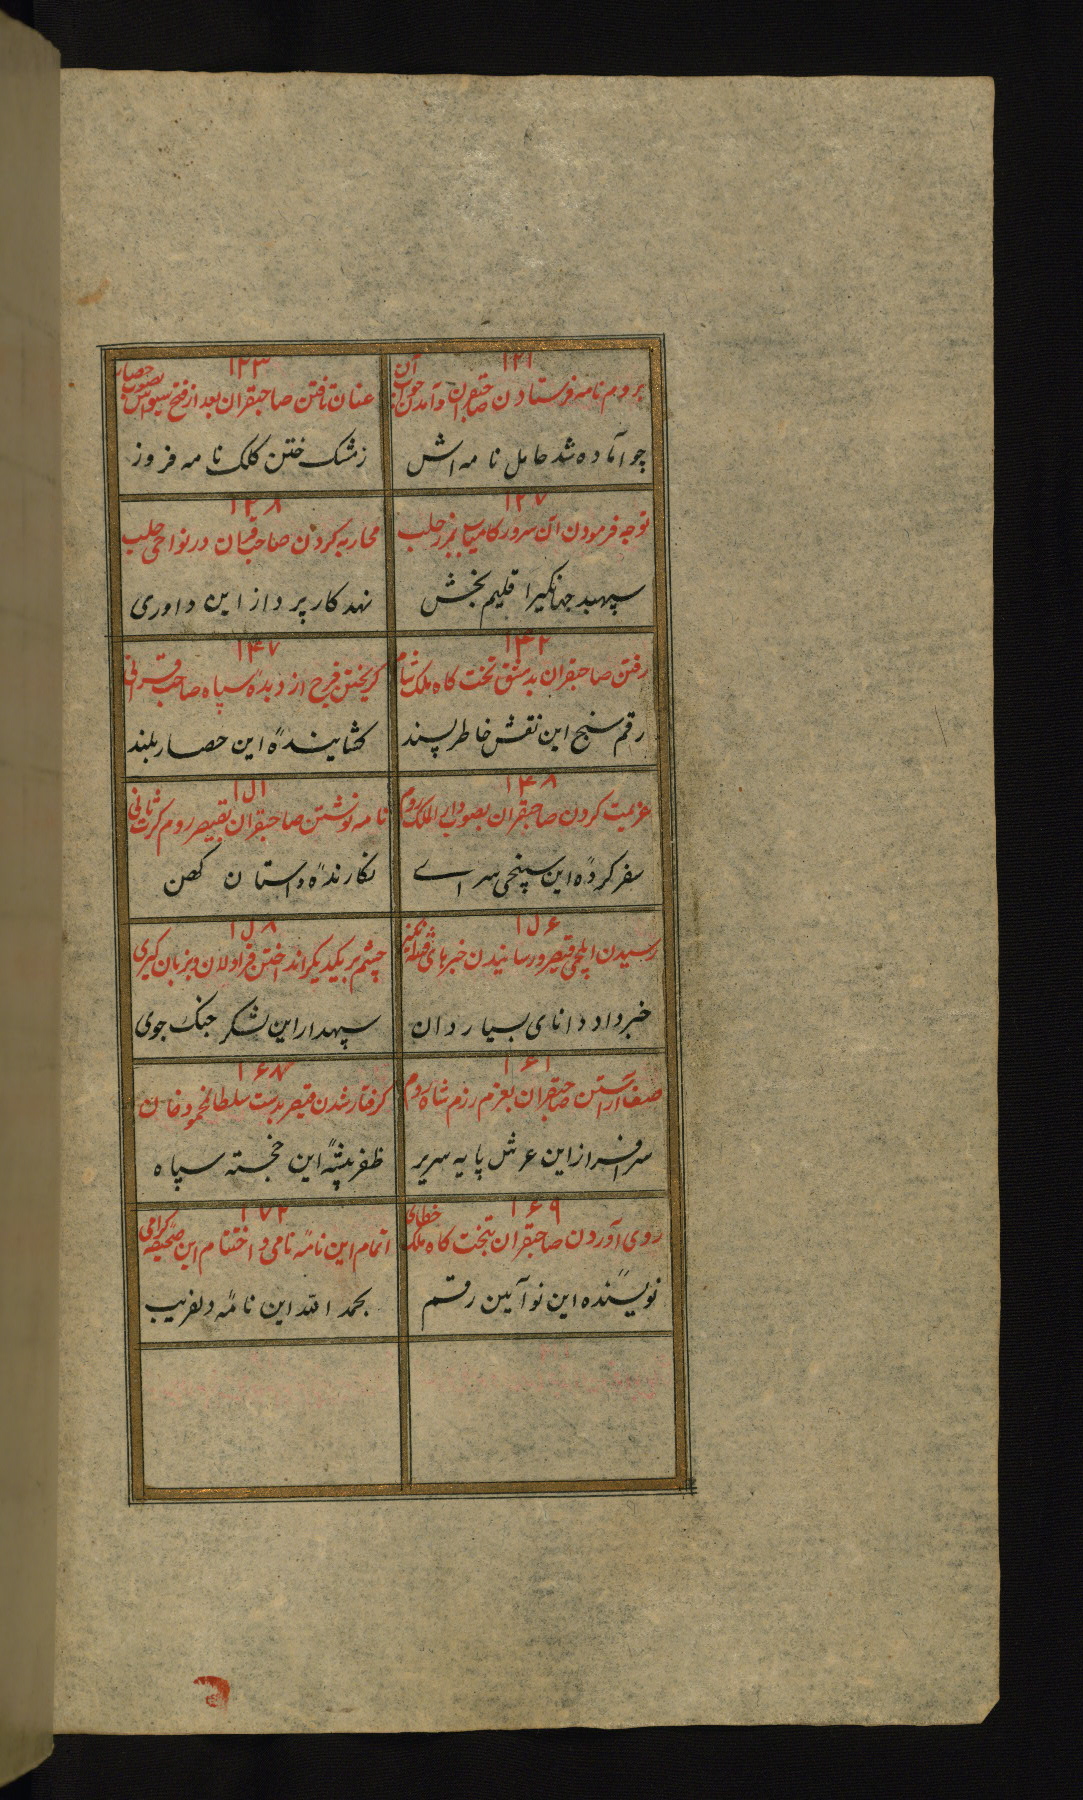 ۱۲۱
بروم نامه فرستادن صاحبقران و آمدن جواب آن
چو آماده شد حامل نامه اش
۱۲۳
عنان تافتن صاحبقران بعد از فتح سیواس بصوب
ز مشک ختن کلک نامه فروز
۱۲۷
توجه فرمودن آن سرور کامیاب حلب
سپهبد جهانگیر اقلیم بخش
۱۲۸
محاربه کردن صاحبقران در نواحی حلب
نهد کار پرداز این داوری
۱۴۲
رفتن صاحبقران بدمشق تخت کاه ملک شام
رقم سنج این نقش خاطر پسند
۱۴۷
کریختن فرج از دبدبهٔ سپاه صاحب قرانی
کشایندهٔ این حصار بلند
۱۴۸
عزیمت کردن صاحبقران بصوب دار الملک روم
سفر کردهٔ این سپنجی سرای
۱۵۱
نامه نوشتن صاحبقران بقیصر روم کرت ثانی
نکارندهٔ داستان کهن
۱۵۶
رسیدن ایلچی قیصر و رسانیدن خبرهای فتنه انکیز
خبر داد دانای بسیار دان
۱۵۸
چشم بر یکدیکر انداختن قراولان و زبان کیری
سپهدار این لشکر جنک جوی
۱۶۱
صف آراستن صاحبقران بعزم رزم شاه روم
سرافراز این عرش پایه سریر
۱۶۷
کرفتار شدن قیصر بدست سلطان محمود خان
ظفر پیشهٔ این خجسته سپاه
۱۶۹
روی آوردن صاحبقران بتخت کاه ملک خطای
نویسندهٔ این نو آیین رقم
۱۷۲
اتمام این نامهٔ نامی و اختتام این صحیفهٔ کرامی
بحمد الله این نامهٔ دلفریب